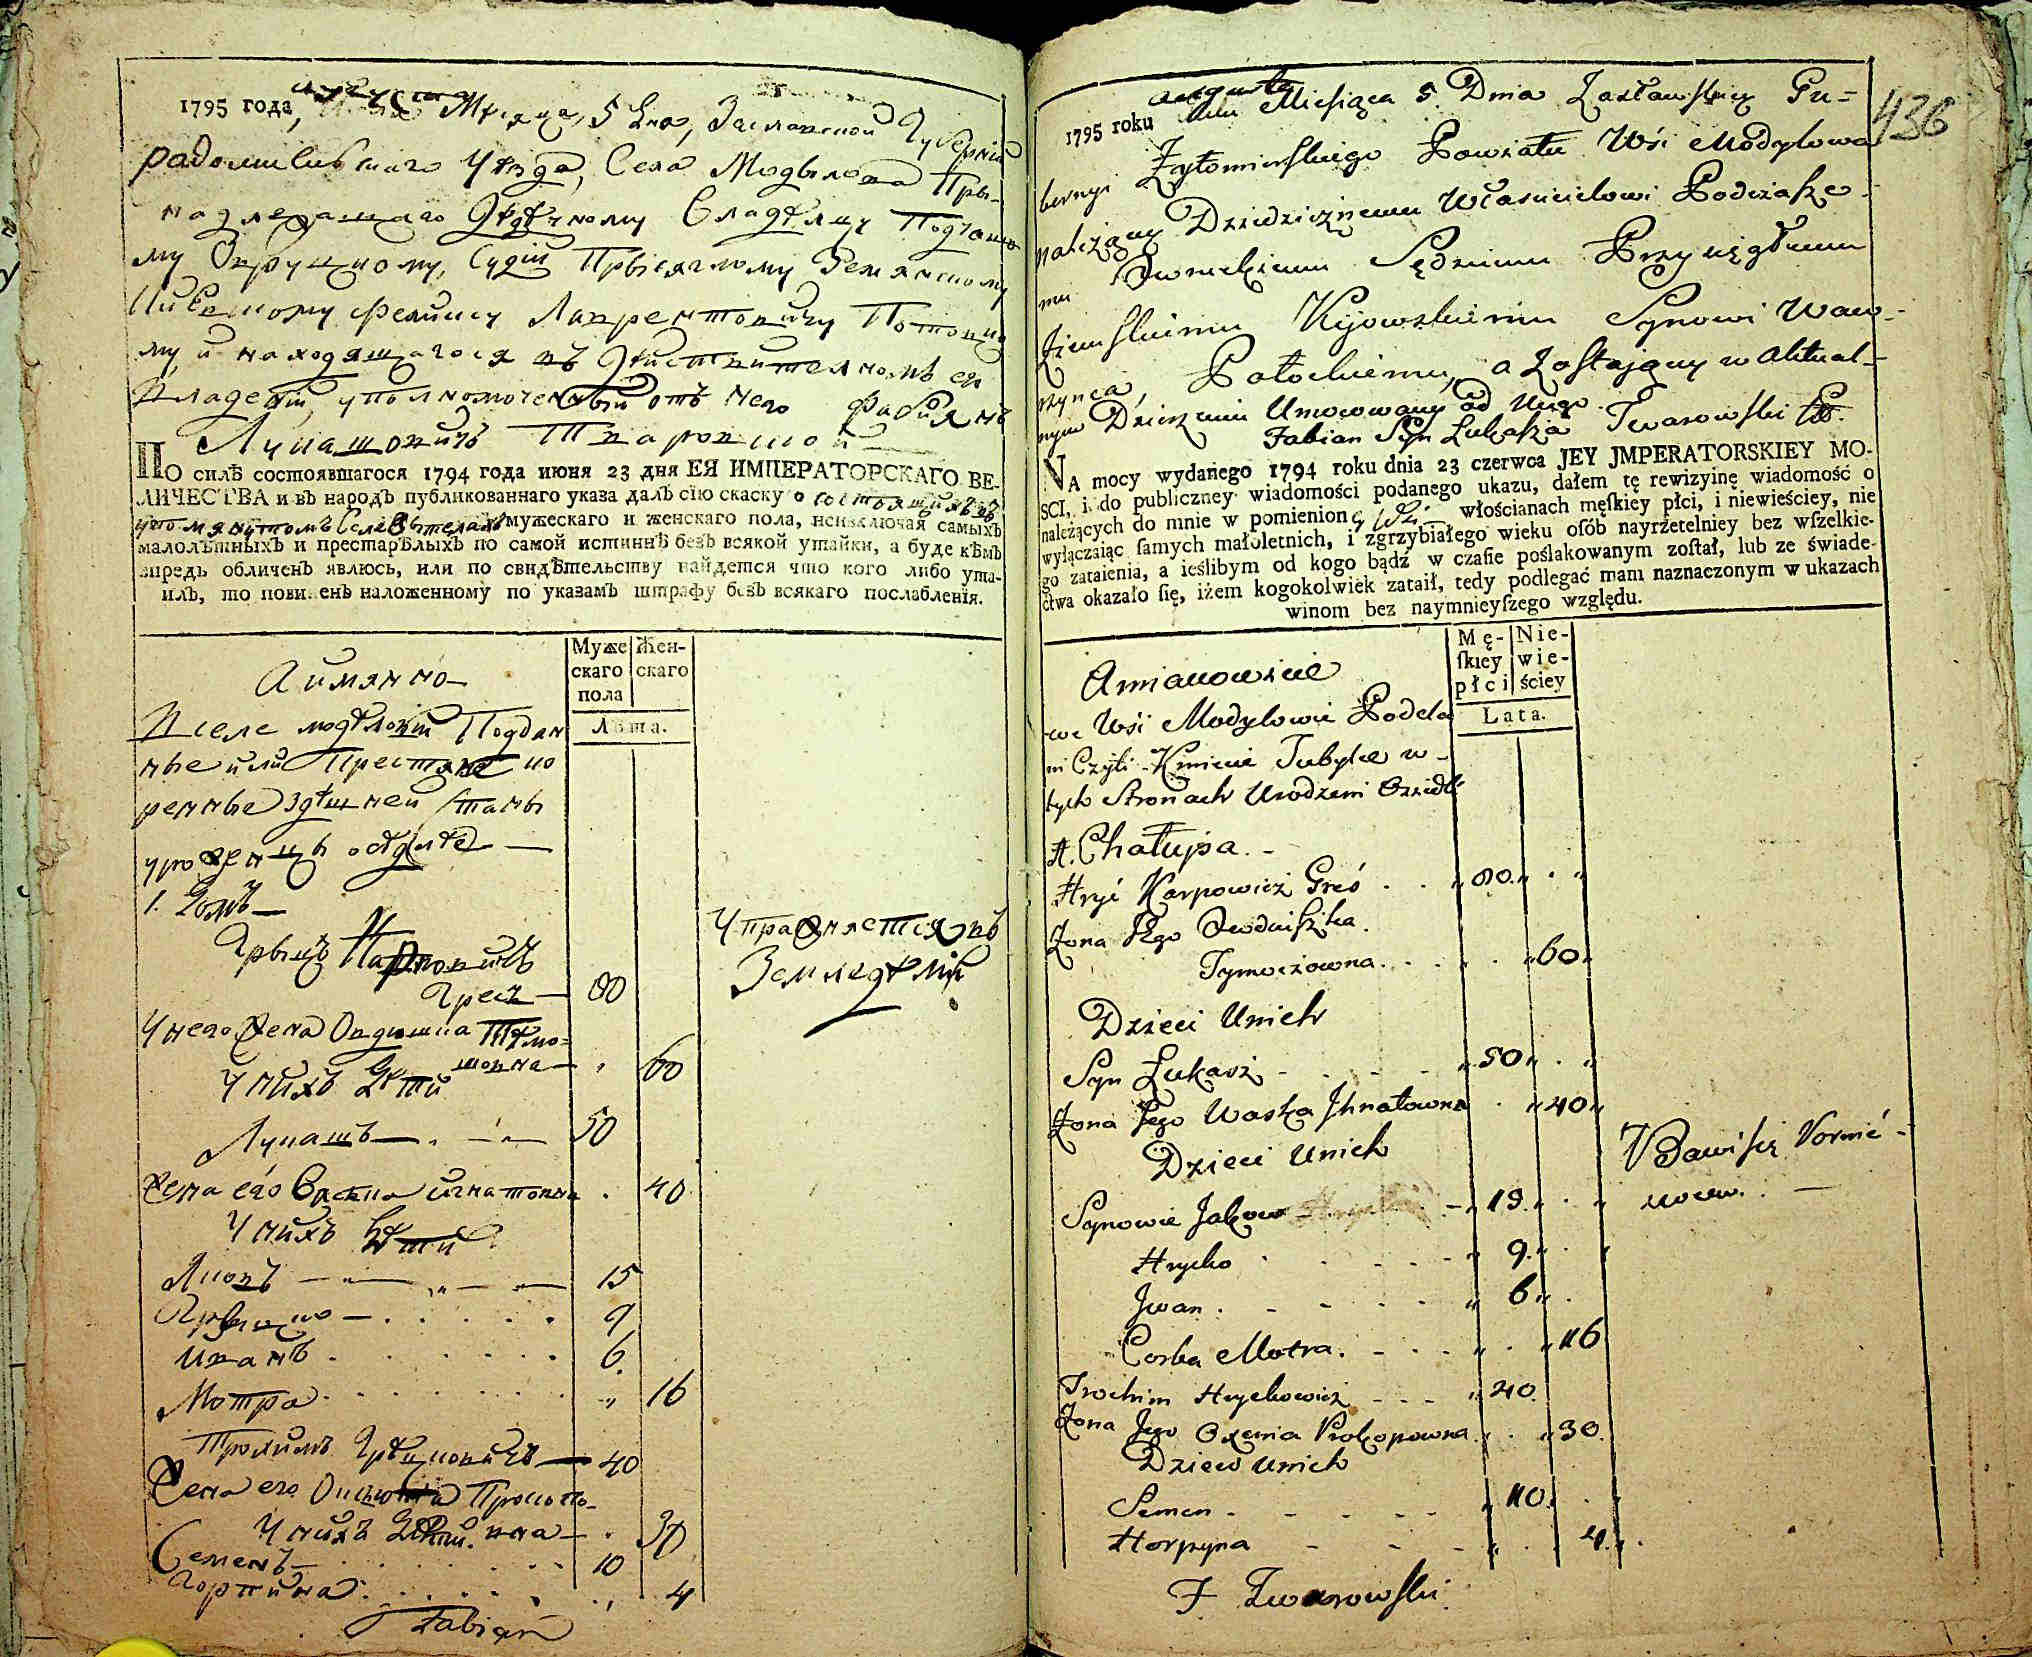 1795 года, августа Мѣсяца, 5 Дня, Заславской Губерніи
радомишльскаго Уѣзда, Села Модылова Пры-
надлежащаго Дѣдычному Владѣльцу Подчашо-
му Овруцкому, Судіи Прысяглому Земянскому
Киевскому Феликсу Лаврентовичу Потоцко
му, и находящагося въ Дѣйствительномъ ея
владеніи, уполномоченный отъ него Фабиянъ
Лукашовичъ Тваровской
ПО силѣ состоявшагося 1794 года июня 23 дня ЕЯ ИМПЕРАТОРСКАГО ВЕ-
ЛИЧЕСТВА и въ народъ публикованнаго указа далъ сію скаску о состоящихъ въ
упомянутомъ Селѣ жителахъ мужескаго и женскаго пола, неизключая самыхъ
малолѣтныхъ и престарѣлыхъ по самой истиннѣ безъ всякой утайки, а буде кѣмъ
впредь обличенъ явлюсь, или по свидѣтельству найдется что кого либо ута-
илъ, то повиненъ наложенному по указамъ штрафу безъ всякаго послабленія.
Муже Жен-
скаго скаго
пола
Лѣта.
А имянно
В селе модѣловѣ Поддан
ные или Крестяне ко
ренные здѣшней Стланы
уроженцы оседле
1. Домъ
Грыцъ Карповичъ
Гресь 80
У него Жена Овдюшка Тымо=
шовна 60
У нихъ Дѣти
Лукашъ 50
Жена его Васка игнатовна 40
У нихъ Дѣти
Яковъ 15
Грыцко 9
Иванъ 6
Мотра 16
Трохимъ Грыцковичъ 40
Жена его Оксюта Прокопо-
вна 30
У нихъ Дѣти
Семенъ 10
Горпина 4
Упражняется въ
Земледѣліи
Fabian
436
1795 roku augusta Miesiąca 5 Dnia Zasławskiey Gu=
bernyi Żytomirskiego Powiatu Wśi Modylowa
należący Dziedzicznemu Właścicielowi Podczasze-
mu Owruckiemu Sędziemu Przysięgłemu
Ziemskiemu Kijowskiemu Synowi Waw-
rzynca, Potockiemu, a Zostający w Aktual-
nym Dzierzeniu Umocowany od Niego
Fabian Syn Łukasza Twarowski
NA mocy wydanego 1794 roku dnia 23 czerwca JEY JMPERATORSKIEY MO-
SCI, i do publiczney wiadomości podanego ukazu, dałem tę rewizyinę wiadomość o
należących do mnie w pomienioney Wśi włościanach męſkiey płci, i niewieściey, nie
wyłączaiąc ſamych małoletnich, i zgrzybiałego wieku oſób nayrzetelniey bez wſzelkie-
go zataienia, a ieślibym od kogo bądź w czaſie poślakowanym zoſtał, lub ze świade-
ctwa okazało ſię, iżem kogokolwiek zataił, tedy podlegać mam naznaczonym w ukazach
winom bez naymnieyſzego względu.
Mę- Nie-
ſkiey wie-
płci ściey
Lata.
A mianowicie
we Wśi Modylowie Podda
ni Czyli Kmiecie Tubylce w-
tych Stronach Urodzeni Osiedli
1. Chałupa.
Hryć Karpowicz Greś 80
Zona Jego Owduszka
Tymoczowna 60
Dzieci Unich
Syn Łukasz 50
Zona Jego Waska Jhnatowna 40
Dzieci Unich
Synowie Jakow 15
Hrycko 9
Jwan 6
Corka Motra 16
Trochim Hryckowicz 40
Zona Jego Oxenia Prokopowna 30
Dzieci Unich
Semen 10
Horpyna 4
Bawi się Rolnic-
twem
F Twarowski